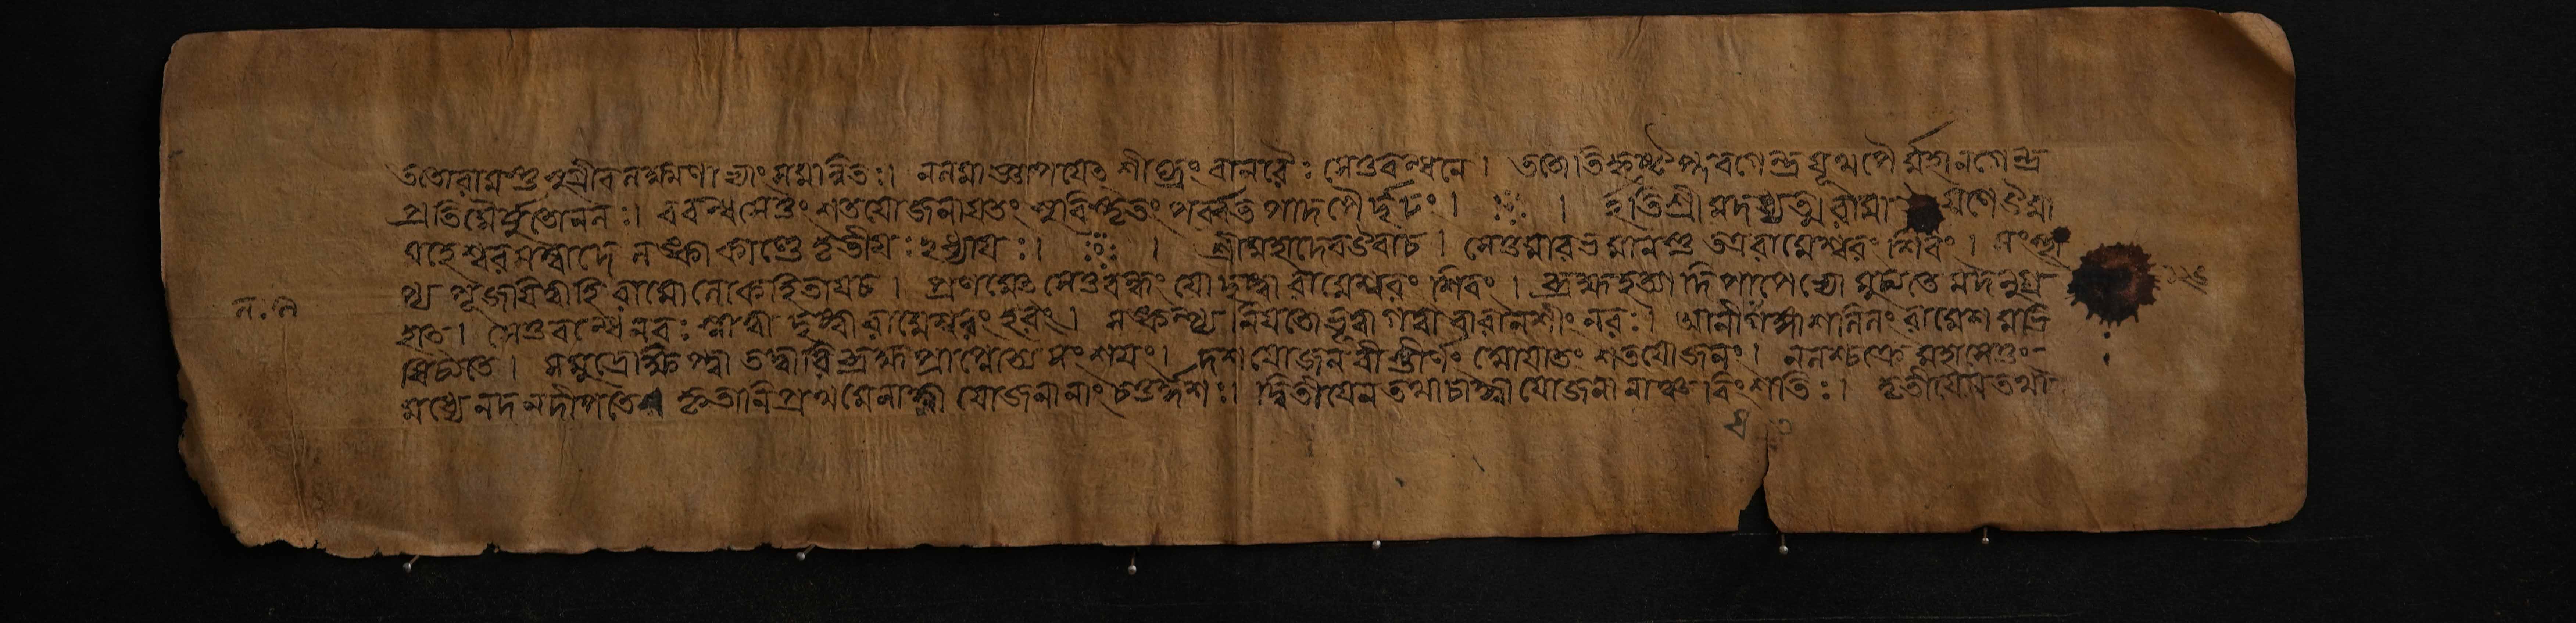 ততোরামস্তু সুগ্রীবলক্ষ্মণাভ্যাং সমন্বিতঃ। নলমাজ্ঞাপযেৎ শীঘ্রং বানরৈঃ সেতুবন্ধনে। ততোতিহৃষ্টঃ প্লবগেন্দ্রযূথপৈর্মহানগেন্দ্র
প্রতিমৈর্বৃতোনলঃ। ববন্ধসেতুং শতযোজনাযতং সুবিস্তৃতং পর্ব্বতপাদপৈর্দৃঢং। । ইতিশ্রীমদধ্যাত্মরামা যণেউমা
মহেশ্বরসম্বাদে লঙ্কাকাণ্ডে তৃতীযঃ২ধ্যাযঃ। । শ্রীমহাদেবউবাচ। সেতুমারভমানস্তু তত্ররামেশ্বরং শিবং। সংস্থা
প্য পূজযিত্বাহ রামোলোকহিতাযচ। প্রণমেৎ সেতুবন্ধং যোদৃষ্ট্বা রামেশ্বরং শিবং। ব্রহ্মহত্যাদিপাপেভ্যো মুচ্যতে মদনুগ্র
হাত। সেতুবন্ধেনরঃ স্নাত্বা দৃষ্ট্বারামেশ্বরং হরং। সঙ্কল্প্য নিযতোভূত্বা গত্বা বারানশীং নরঃ। আনীযগঙ্গাশলিলং রামেশমভি
ষিচ্যতে। সমুদ্রেক্ষিপ্ত্বা তদ্ভারংব্রহ্ম প্রাপ্নোত্য সংশযং। দশযোজনবীস্তীর্ণং মাযাতং শতযোজনং। নলশ্চক্রে মহাসেতুং
মধ্যে নদনদীপতেঃ কৃতানিপ্রথমেনাহ্না যোজনানাং চতুর্দ্দশঃ। দ্বিতীযেন তথাচাহ্না যোজনানাঞ্চ বিংশতিঃ। তৃতীযেনতথা
ল.ল